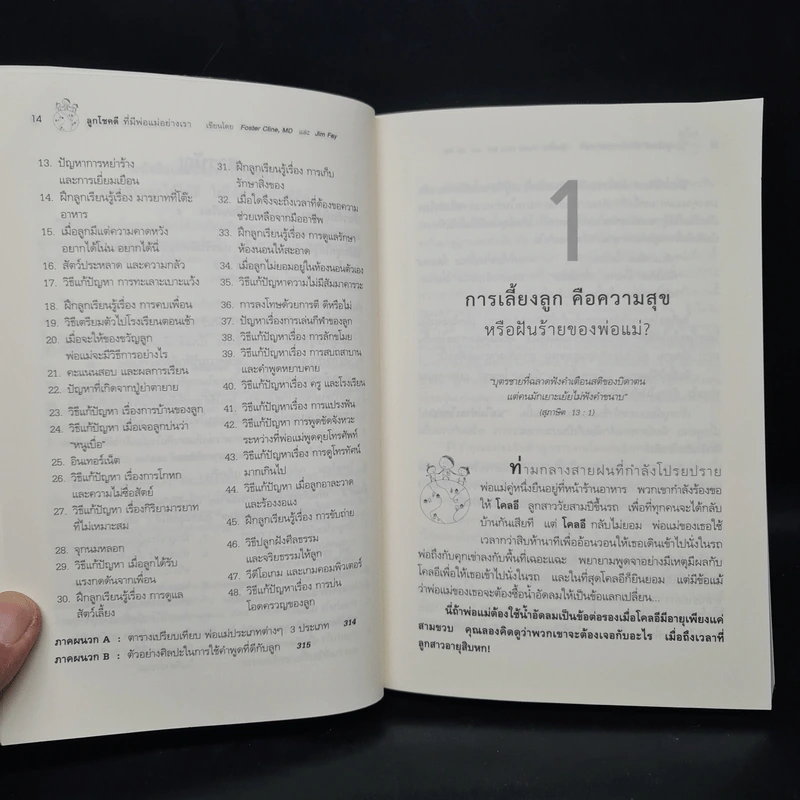 14 ลูกโชคดี ที่มีพ่อแม่อย่างเรา เขียนโดย Foster Cline, MD และ Jim Fay
13. ปัญหาการหย่าร้าง
และการเยี่ยมเยือน
14. ฝึกลูกเรียนรู้เรื่อง มารยาทที่โต๊ะ
อาหาร
15. เมื่อลูกมีแต่ความคาดหวัง
อยากได้โน่น อยากได้นี่
16. สัตว์ประหลาด และความกลัว
17. วิธีแก้ปัญหา การทะเลาะเบาะแว้ง
18. ฝึกลูกเรียนรู้เรื่อง การคบเพื่อน
19. วิธีเตรียมตัวไปโรงเรียนตอนเช้า
20. เมื่อจะให้ของขวัญลูก
พ่อแม่จะมีวิธีการอย่างไร
21. คะแนนสอบ และผลการเรียน
22. ปัญหาที่เกิดจากปู่ย่าตายาย
23. วิธีแก้ปัญหา เรื่องการบ้านของลูก
24. วิธีแก้ปัญหา เมื่อเจอลูกบ่นว่า
"หนูเบื่อ"
25. อินเทอร์เน็ต
26. วิธีแก้ปัญหา เรื่องการโกหก
และความไม่ซื่อสัตย์
27. วิธีแก้ปัญหา เรื่องกิริยามารยาท
ที่ไม่เหมาะสม
28. จุกนมหลอก
29. วิธีแก้ปัญหา เมื่อลูกได้รับ
แรงกดดันจากเพื่อน
30. ฝึกลูกเรียนรู้เรื่อง การดูแล
สัตว์เลี้ยง
31. ฝึกลูกเรียนรู้เรื่อง การเก็บ
รักษาสิ่งของ
32. เมื่อใดจึงจะถึงเวลาที่ต้องขอความ
ช่วยเหลือจากมืออาชีพ
33. ฝึกลูกเรียนรู้เรื่อง การดูแลรักษา
ห้องนอนให้สะอาด
34. เมื่อลูกไม่ยอมอยู่ในห้องนอนตัวเอง
35. วิธีแก้ปัญหาความไม่มีสัมมาคารวะ
36. การลงโทษด้วยการตี ดีหรือไม่
37. ปัญหาเรื่องการเล่นกีฬาของลูก
38. วิธีแก้ปัญหาเรื่อง การลักขโมย
39. วิธีแก้ปัญหาเรื่อง การสบถสาบาน
และคำพูดหยาบคาย
40. วิธีแก้ปัญหาเรื่อง ครู และโรงเรียน
41. วิธีแก้ปัญหาเรื่อง การแปรงฟัน
42. วิธีแก้ปัญหา การพูดขัดจังหวะ
ระหว่างที่พ่อแม่พูดคุยโทรศัพท์
43. วิธีแก้ปัญหาเรื่อง การดูโทรทัศน์
มากเกินไป
44. วิธีแก้ปัญหา เมื่อลูกอาละวาด
และร้องงอแง
45. ฝึกลูกเรียนรู้เรื่อง การขับถ่าย
46. วิธีปลูกฝังศีลธรรม
และจริยธรรมให้ลูก
47. วีดีโอเกม และเกมคอมพิวเตอร์
48. วิธีแก้ปัญหาเรื่อง การบ่น
โอดครวญของลูก
ภาคผนวก A : ตารางเปรียบเทียบ พ่อแม่ประเภทต่างๆ 3 ประเภท 314
ภาคผนวก B : ตัวอย่างศิลปะในการใช้คำพูดที่ดีกับลูก 315
1
การเลี้ยงลูก คือความสุข
หรือฝันร้ายของพ่อแม่?
"บุตรชายที่ฉลาดฟังคำเตือนสติของบิดาตน
แต่คนมักเยาะเย้ยไม่ฟังคำขนาบ"
(สุภาษิต 13 : 1)
ท่ามกลางสายฝนที่กำลังโปรยปราย
พ่อแม่คู่หนึ่งยืนอยู่ที่หน้าร้านอาหาร พวกเขากำลังร้องขอ
ให้ โคลอี ลูกสาววัยสามปีขึ้นรถ เพื่อที่ทุกคนจะได้กลับ
บ้านกันเสียที แต่ โคลอี กลับไม่ยอม พ่อแม่ของเธอใช้
เวลากว่าสิบห้านาทีเพื่ออ้อนวอนให้เธอเดินเข้าไปนั่งในรถ
พ่อถึงกับคุกเข่าลงกับพื้นที่เฉอะแฉะ พยายามพูดจาอย่างมีเหตุมีผลกับ
โคลอีเพื่อให้เธอเข้าไปนั่งในรถ และในที่สุดโคลอีก็ยินยอม แต่มีข้อแม้
ว่าพ่อแม่ของเธอจะต้องซื้อน้ำอัดลมให้เป็นข้อแลกเปลี่ยน...
นี่ถ้าพ่อแม่ต้องใช้น้ำอัดลมเป็นข้อต่อรองเมื่อโคลอีมีอายุเพียงแค่
สามขวบ คุณลองคิดดูว่าพวกเขาจะต้องเจอกับอะไร เมื่อถึงเวลาที่
ลูกสาวอายุสิบหก!